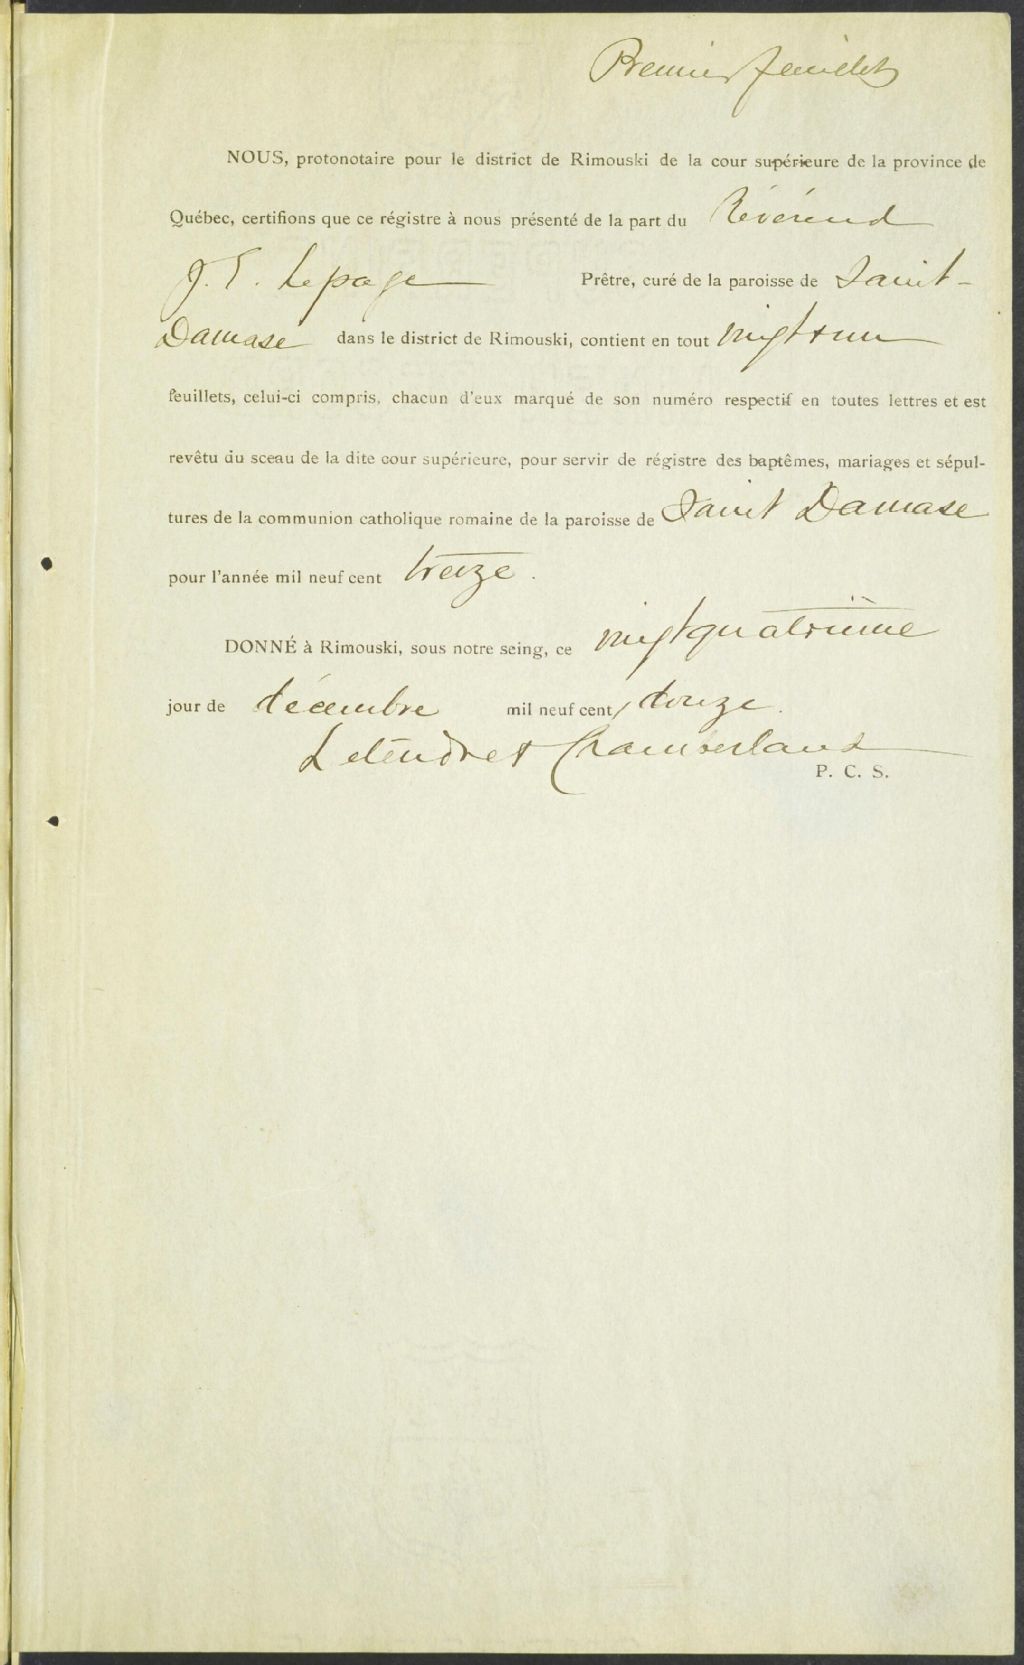 Premier feuillet
NOUS, protonotaire pour le district de Rimouski de la cour supérieure de la province de
Québec, certifions que ce régistre à nous présenté de la part du Révérend
J. E. Lepage Prêtre, curé de la paroisse de Saint-
Damase dans le district de Rimouski, contient en tout vingt & un
feuillets, celui-ci compris, chacun d'eux marqué de son numéro respectif en toutes lettres et est
revêtu du sceau de la dite cour supérieure, pour servir de régistre des baptêmes, mariages et sépul-
tures de la communion catholique romaine de la paroisse de Saint Damase
pour l'année mil neuf cent treize.
DONNÉ à Rimouski, sous notre seing, ce vingtquatrième
jour de décembre mil neuf cent douze.
Letendre & Chamberland
P. C. S.